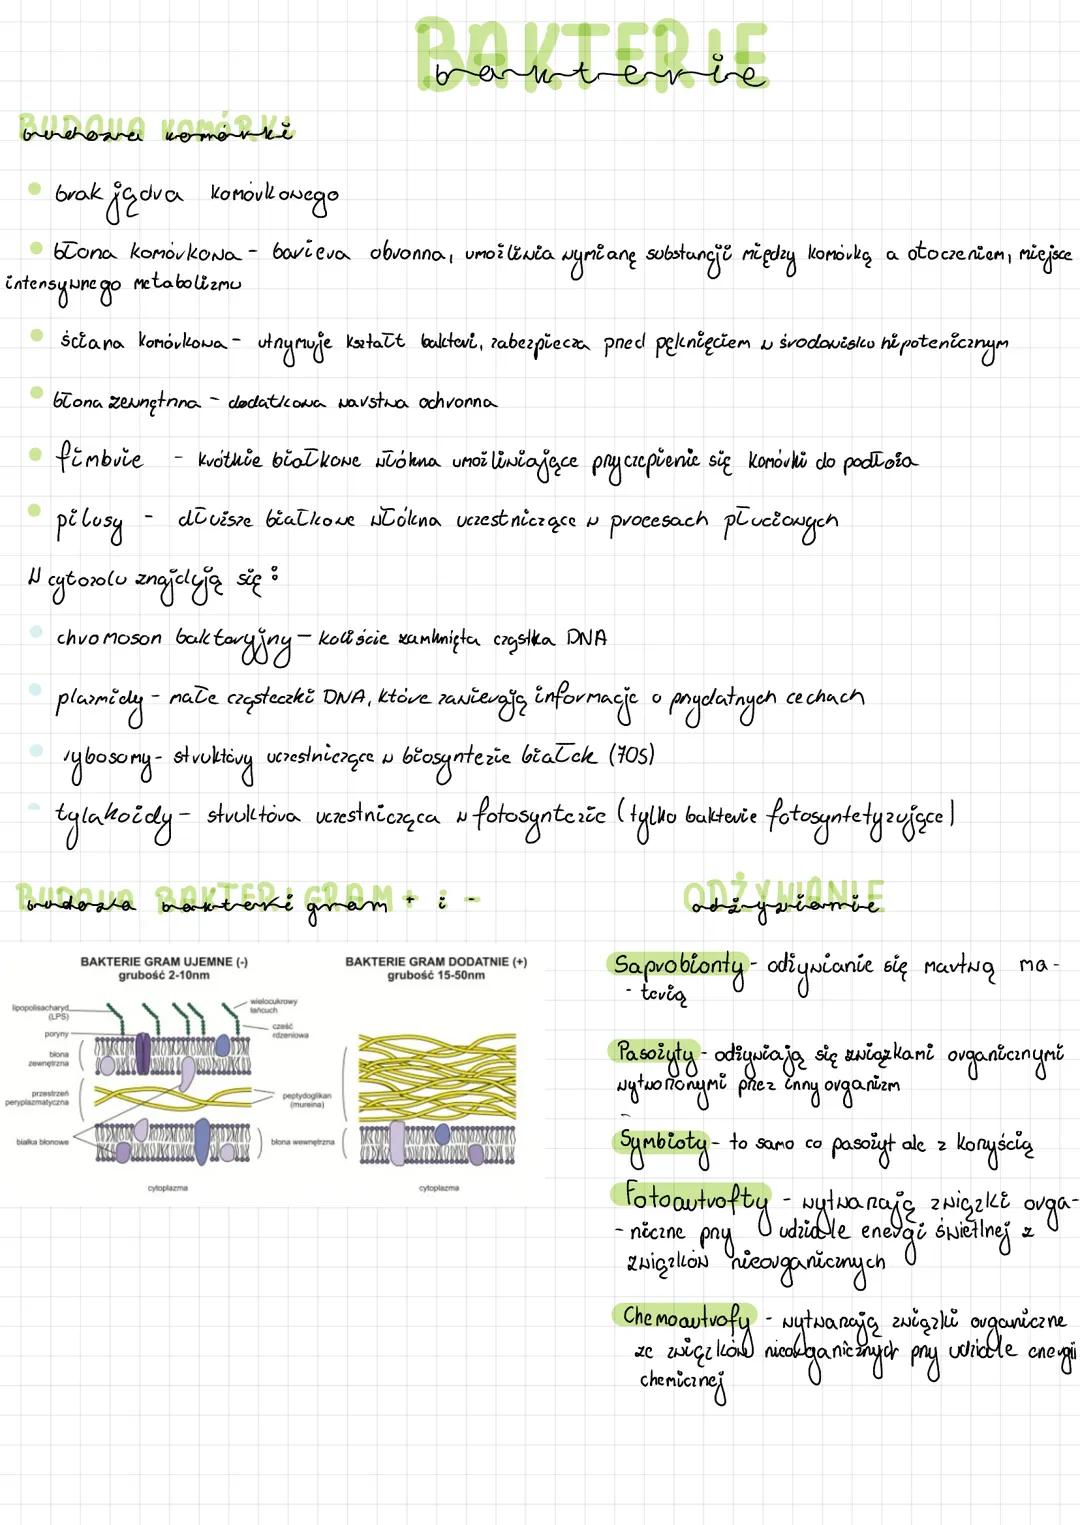 BAKTERIE
bakterie
BUDOWA KOMÓRKI
budowa komórki
brak jądra komórkowego
błona komórkowa - bariera obronna, umożliwia wymianę substancji między komórką a otoczeniem, miejsce
intensywnego metabolizmu
ściana komórkowa - utrzymuje kształt bakteri, zabezpiecza przed pęknięciem w środowisku hipotenicznym
błona zewnętrzna - dodatkowa warstwa ochronna
fimbrie - krótkie białkowe włókna umożliwiające przyczepienie się komórki do podłoża
pilusy - dłuższe białkowe włókna uczestniczące w procesach płuciowych
W cytozolu znajdują się :
chromoson bakteryjny - koliście zamknięta cząstka DNA
plazmidy - małe cząsteczki DNA, które zawierają informacje o przydatnych cechach
rybosomy - struktóry uczestniczące w biosyntezie białek (70S)
tylakoidy - struktóra uczestnicząca w fotosyntezie (tylko bakterie fotosyntetyzujące)
BUDOWA BAKTERI GRAM + i -
budowa bakterki gram + i -
BAKTERIE GRAM UJEMNE (-)
grubość 2-10nm
lipopolisacharyd
(LPS)
wielocukrowy
łańcuch
cześć
rdzeniowa
poryny
błona
zewnętrzna
przestrzeń
peryplazmatyczna
peptydoglikan
(mureina)
białka błonowe
błona wewnętrzna
cytoplazma
BAKTERIE GRAM DODATNIE (+)
grubość 15-50nm
cytoplazma
ODŻYWIANIE
odżywianie
Saprobionty - odżywianie się martwą ma-
- terią
Pasożyty - odżywiają się związkami organicznymi
wytworzonymi przez inny organizm
Symbioty - to samo co pasożyt ale z korzyścią
Fotoautrofty - wytwarzają związki orga-
- niczne przy udziale energi świetlnej z
związków nieorganicznych
Chemoautrofy - wytwarzają związki organiczne
ze związków nieorganicznych przy udziale energii
chemicznej